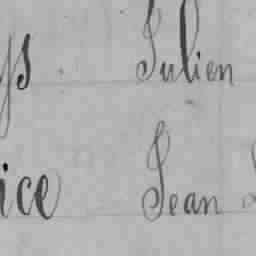 ys Julien
ice Jean